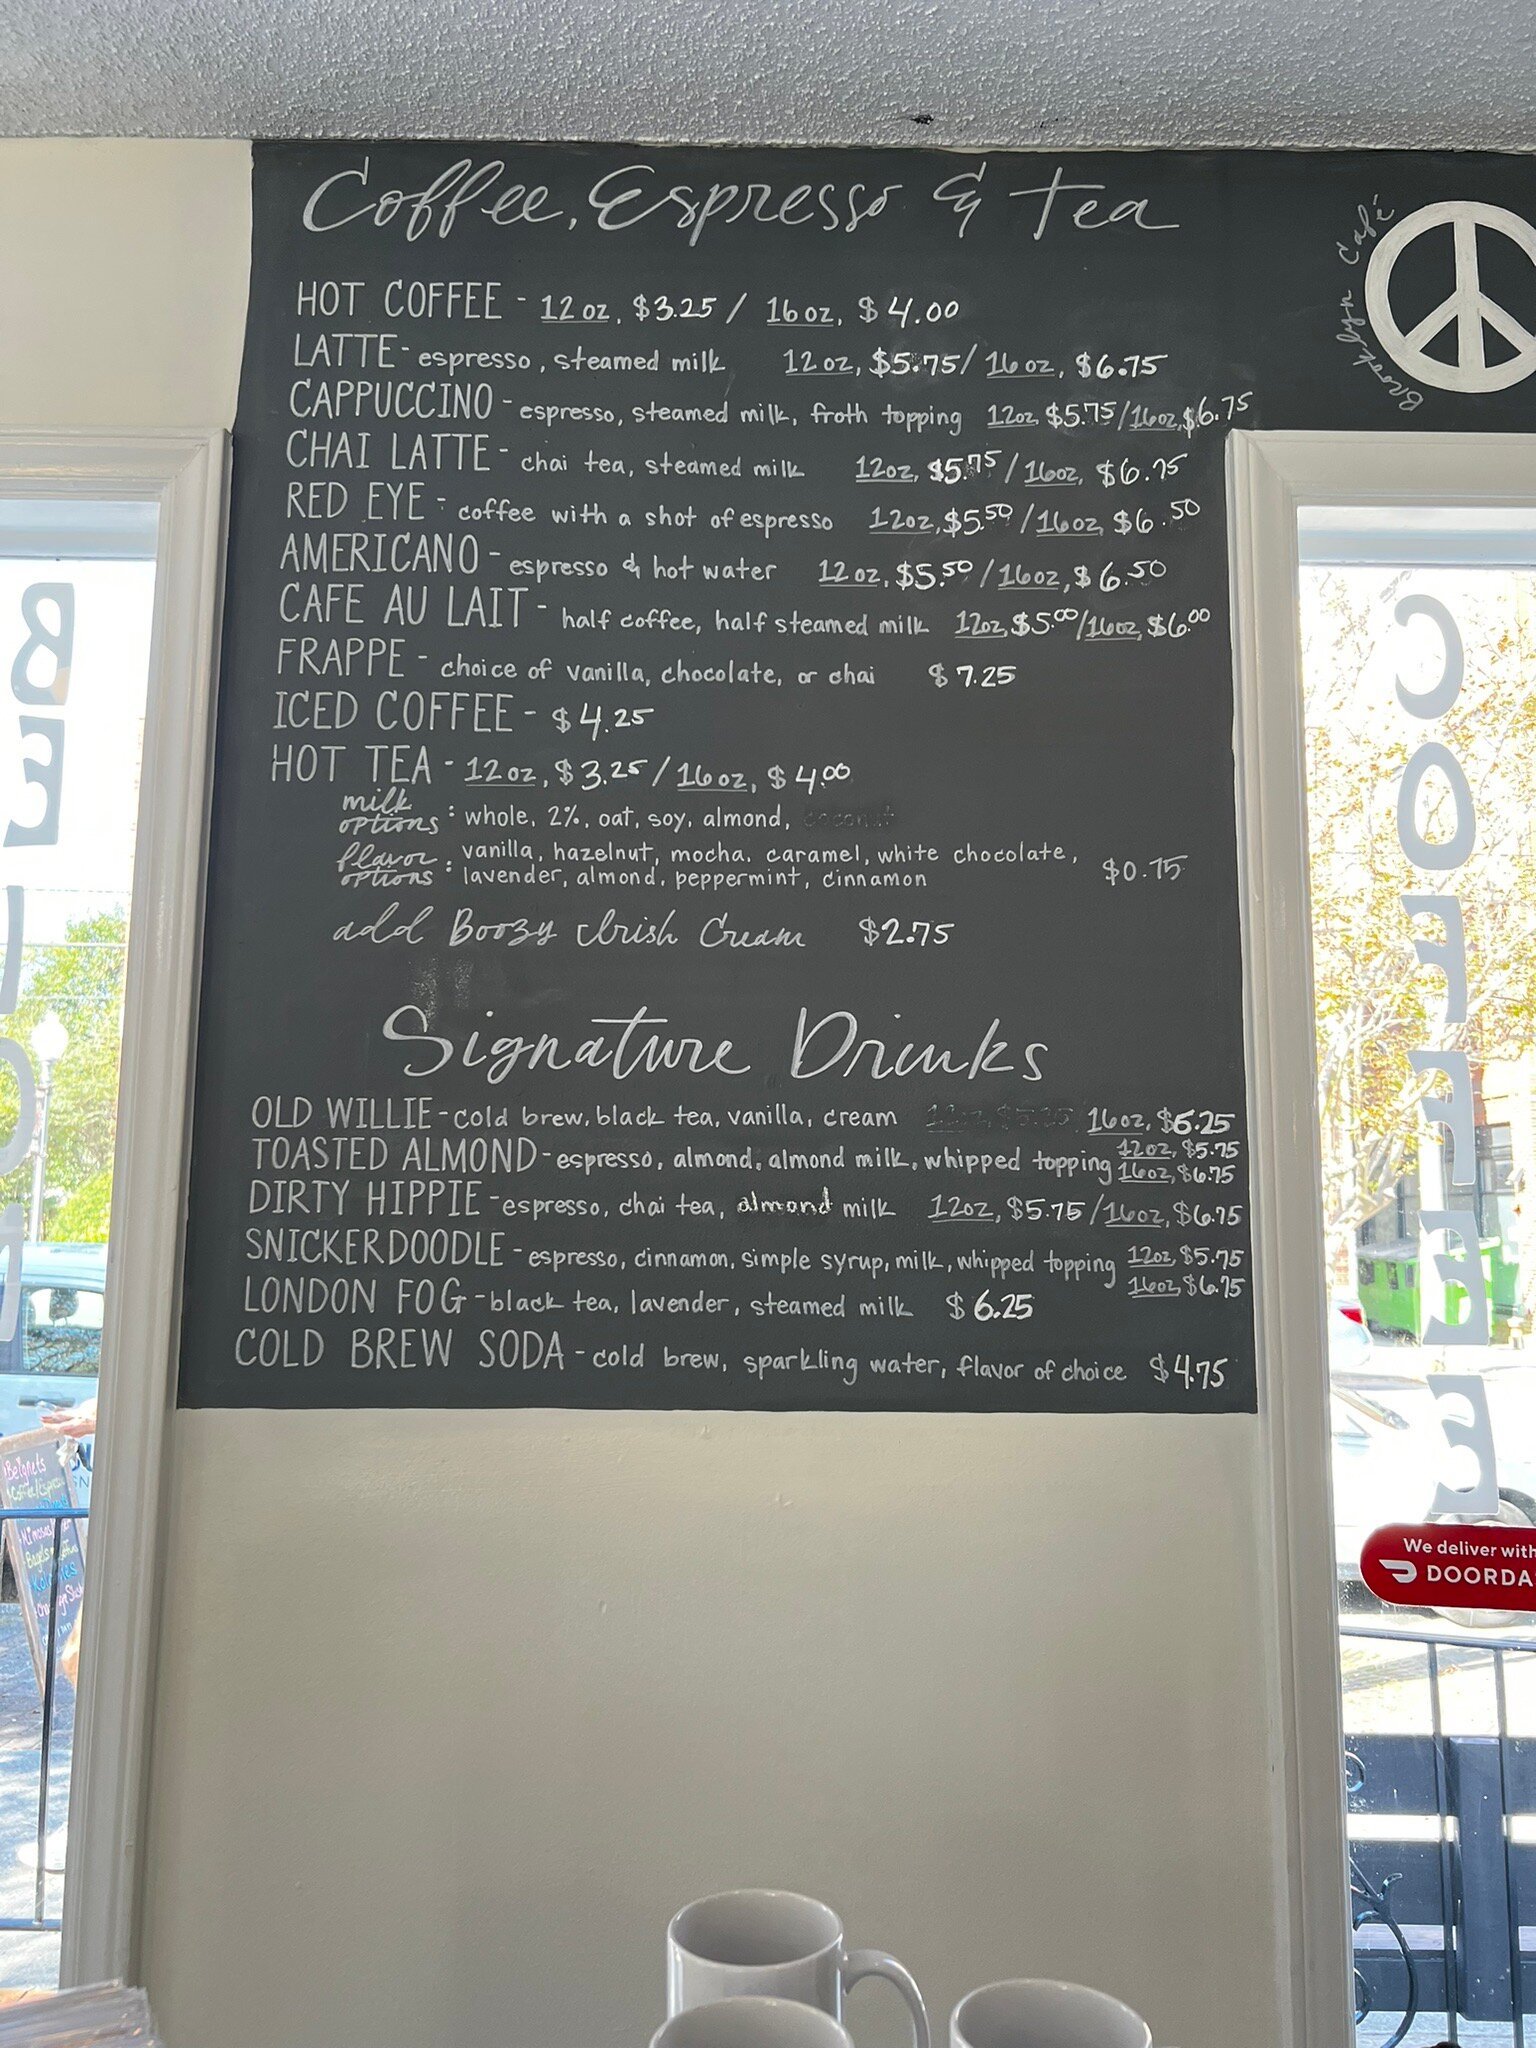 Coffee, Espresso & Tea
Brooklyn Café
HOT COFFEE - 12 oz, $3.25 / 16 oz, $4.00
LATTE - espresso, steamed milk 12 oz, $5.75 / 16 oz, $6.75
CAPPUCCINO - espresso, steamed milk, froth topping 12oz, $5.75 / 16oz, $6.75
CHAI LATTE - chai tea, steamed milk 12oz, $5.75 / 16oz, $6.75
RED EYE - coffee with a shot of espresso 12oz, $5.50 / 16oz, $6.50
AMERICANO - espresso & hot water 12 oz, $5.50 / 16oz, $6.50
CAFE AU LAIT - half coffee, half steamed milk 12oz, $5.00 / 16oz, $6.00
FRAPPE - choice of vanilla, chocolate, or chai $7.25
ICED COFFEE - $4.25
HOT TEA - 12oz, $3.25 / 16oz, $4.00
milk options : whole, 2%, oat, soy, almond, coconut
flavor options : vanilla, hazelnut, mocha, caramel, white chocolate,
lavender, almond, peppermint, cinnamon $0.75
add Boozy Irish Cream $2.75
Signature Drinks
OLD WILLIE - cold brew, black tea, vanilla, cream 16oz, $6.25
TOASTED ALMOND - espresso, almond, almond milk, whipped topping 12oz, $5.75
16oz, $6.75
DIRTY HIPPIE - espresso, chai tea, almond milk 12oz, $5.75 / 16oz, $6.75
SNICKERDOODLE - espresso, cinnamon, simple syrup, milk, whipped topping 12oz, $5.75
16oz, $6.75
LONDON FOG - black tea, lavender, steamed milk $6.25
COLD BREW SODA - cold brew, sparkling water, flavor of choice $4.75
COFFEE
We deliver with
DOORDA
Beignets
Coffee/Espresso
Mimosas
Bagels